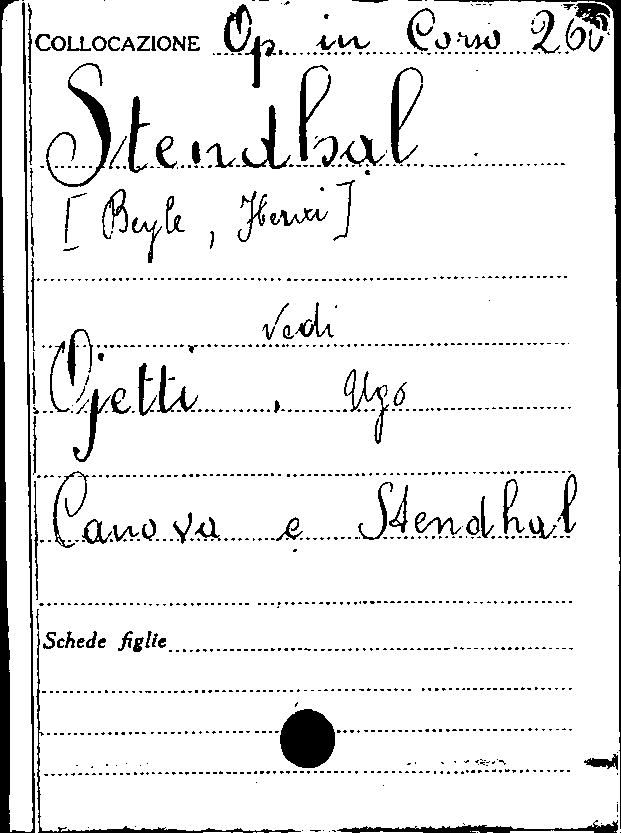 COLLOCAZIONE Op. in Corso 260
Stendhal
[Beyle, Henri]
Vedi
Ojetti, Ugo
Canova e Stendhal
Schede figlie